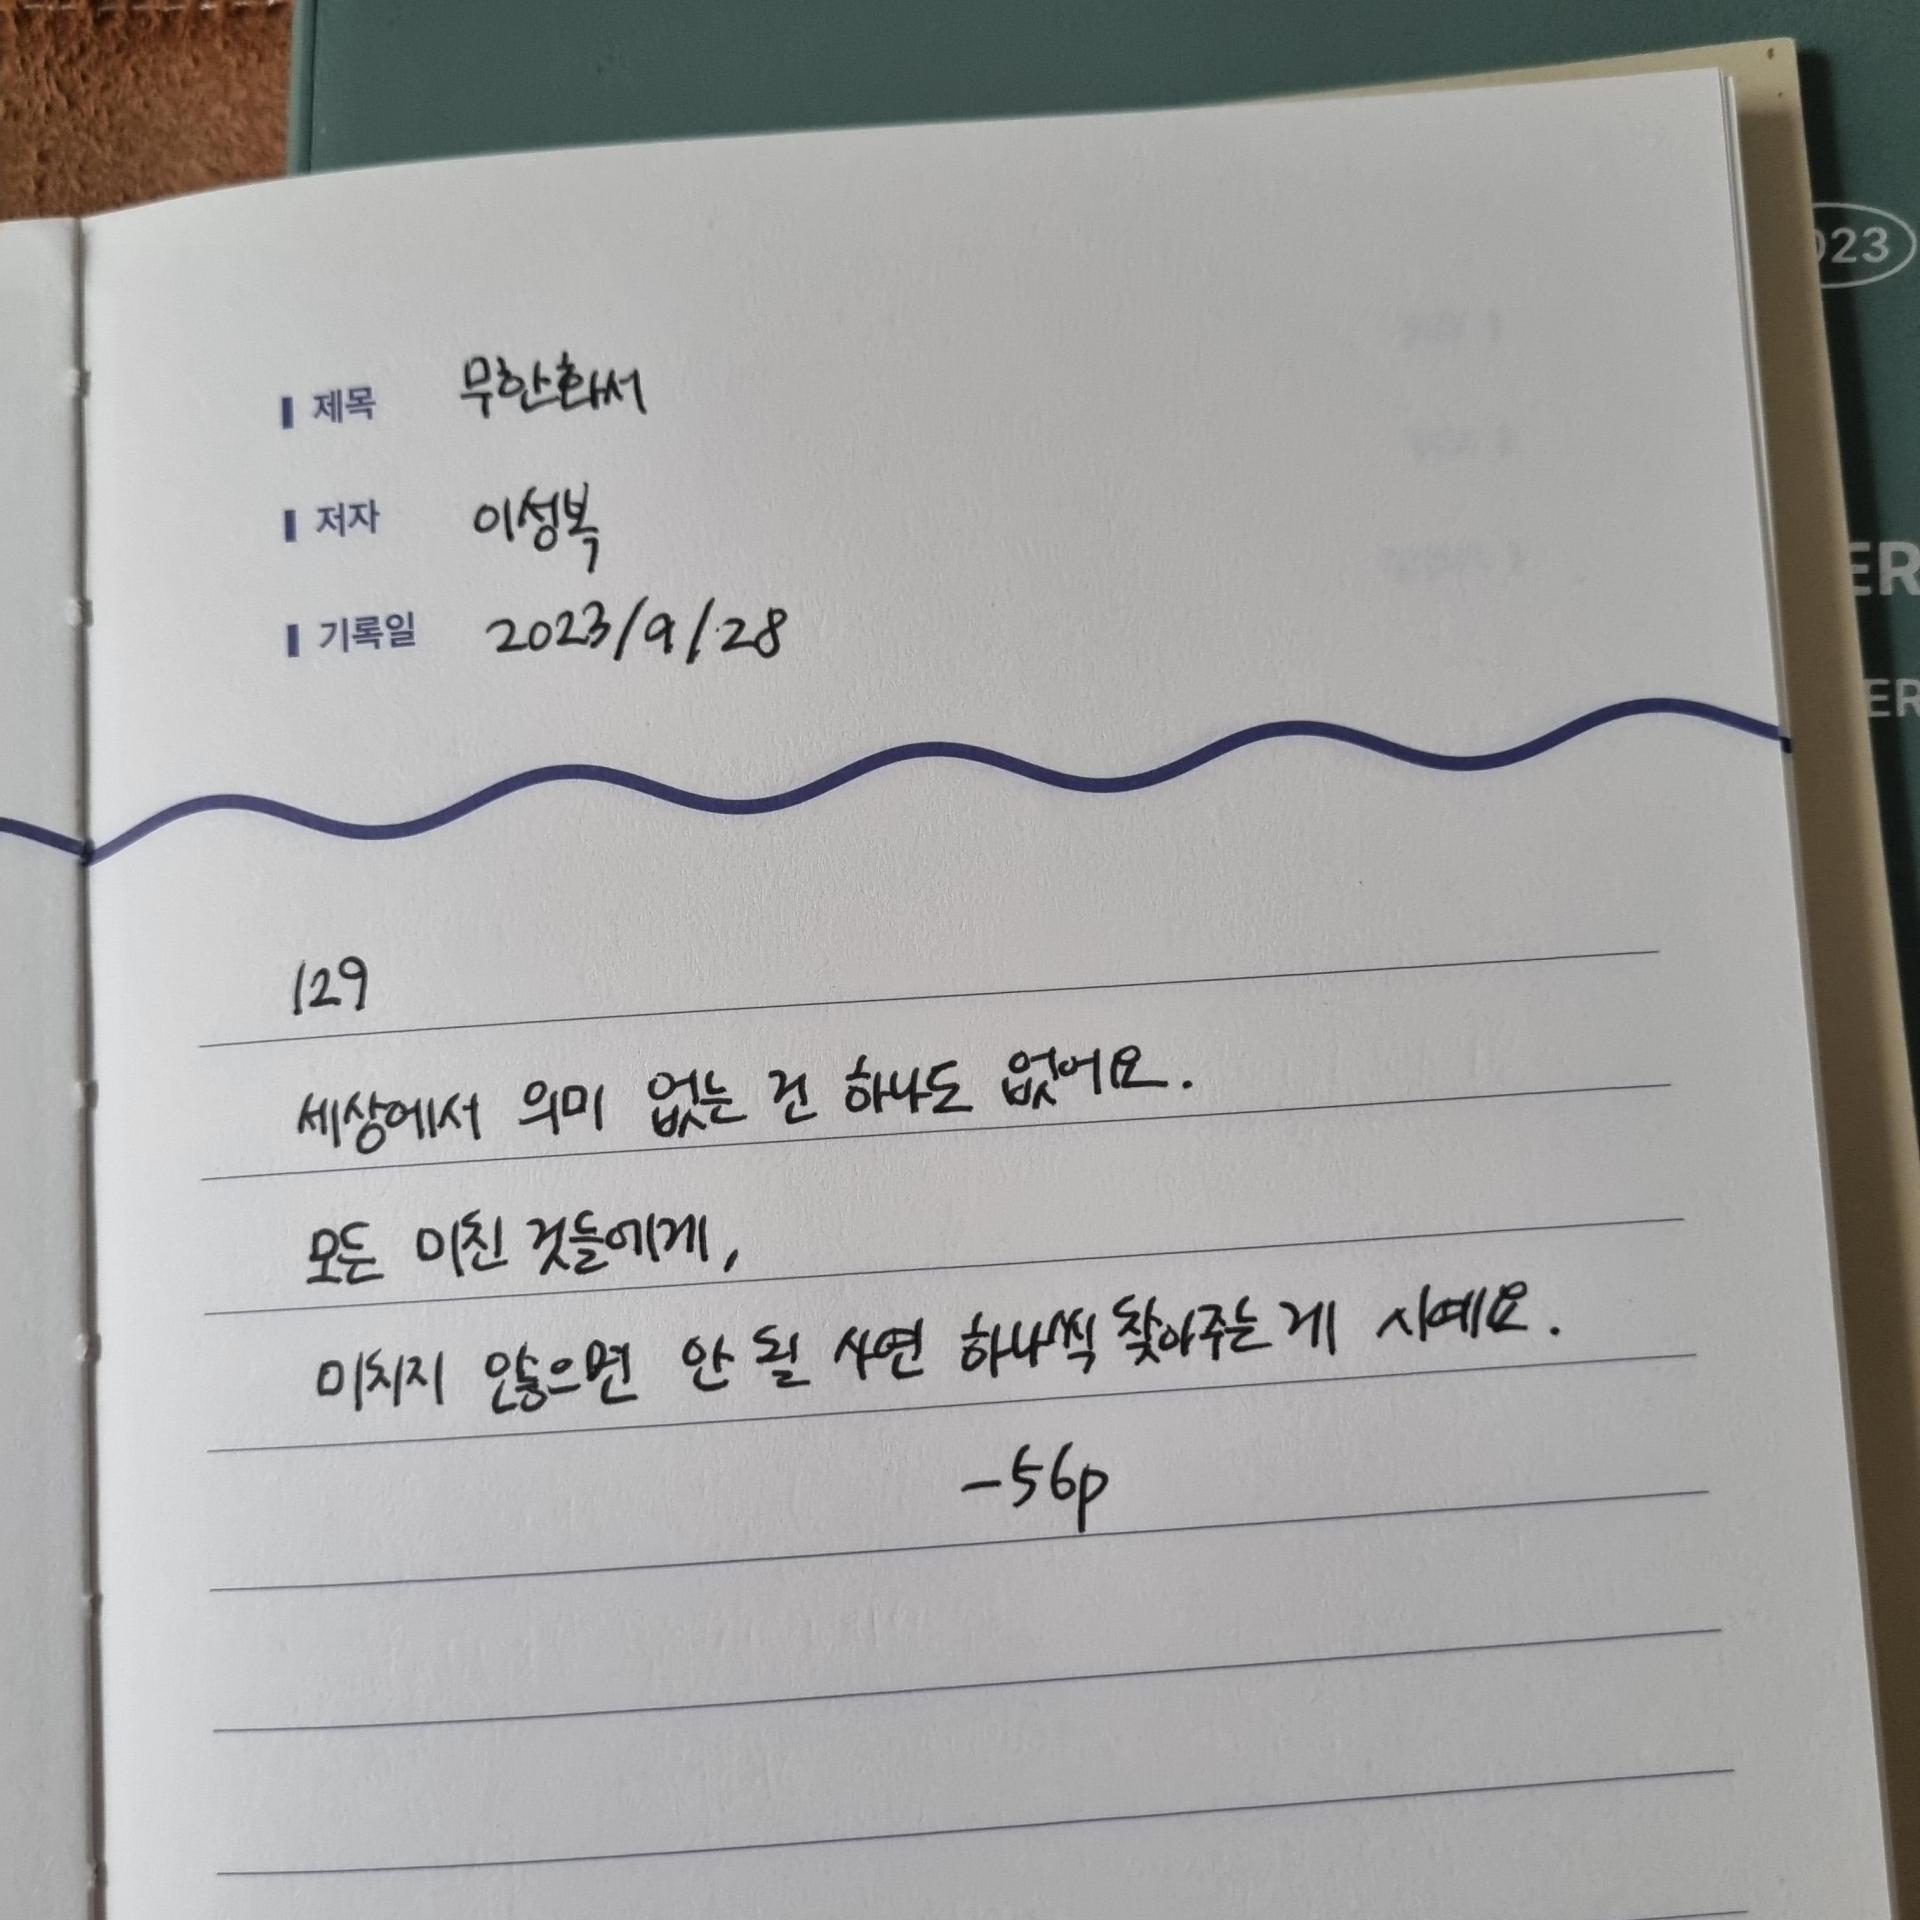 023
제목 무한화서
저자 이성복
ER
기록일 2023/9/28
ER
129
세상에서 의미 없는 건 하나도 없어요.
모든 미친 것들에게,
미치지 않으면 안 될 사연 하나씩 찾아주는 게 시예요.
-56p